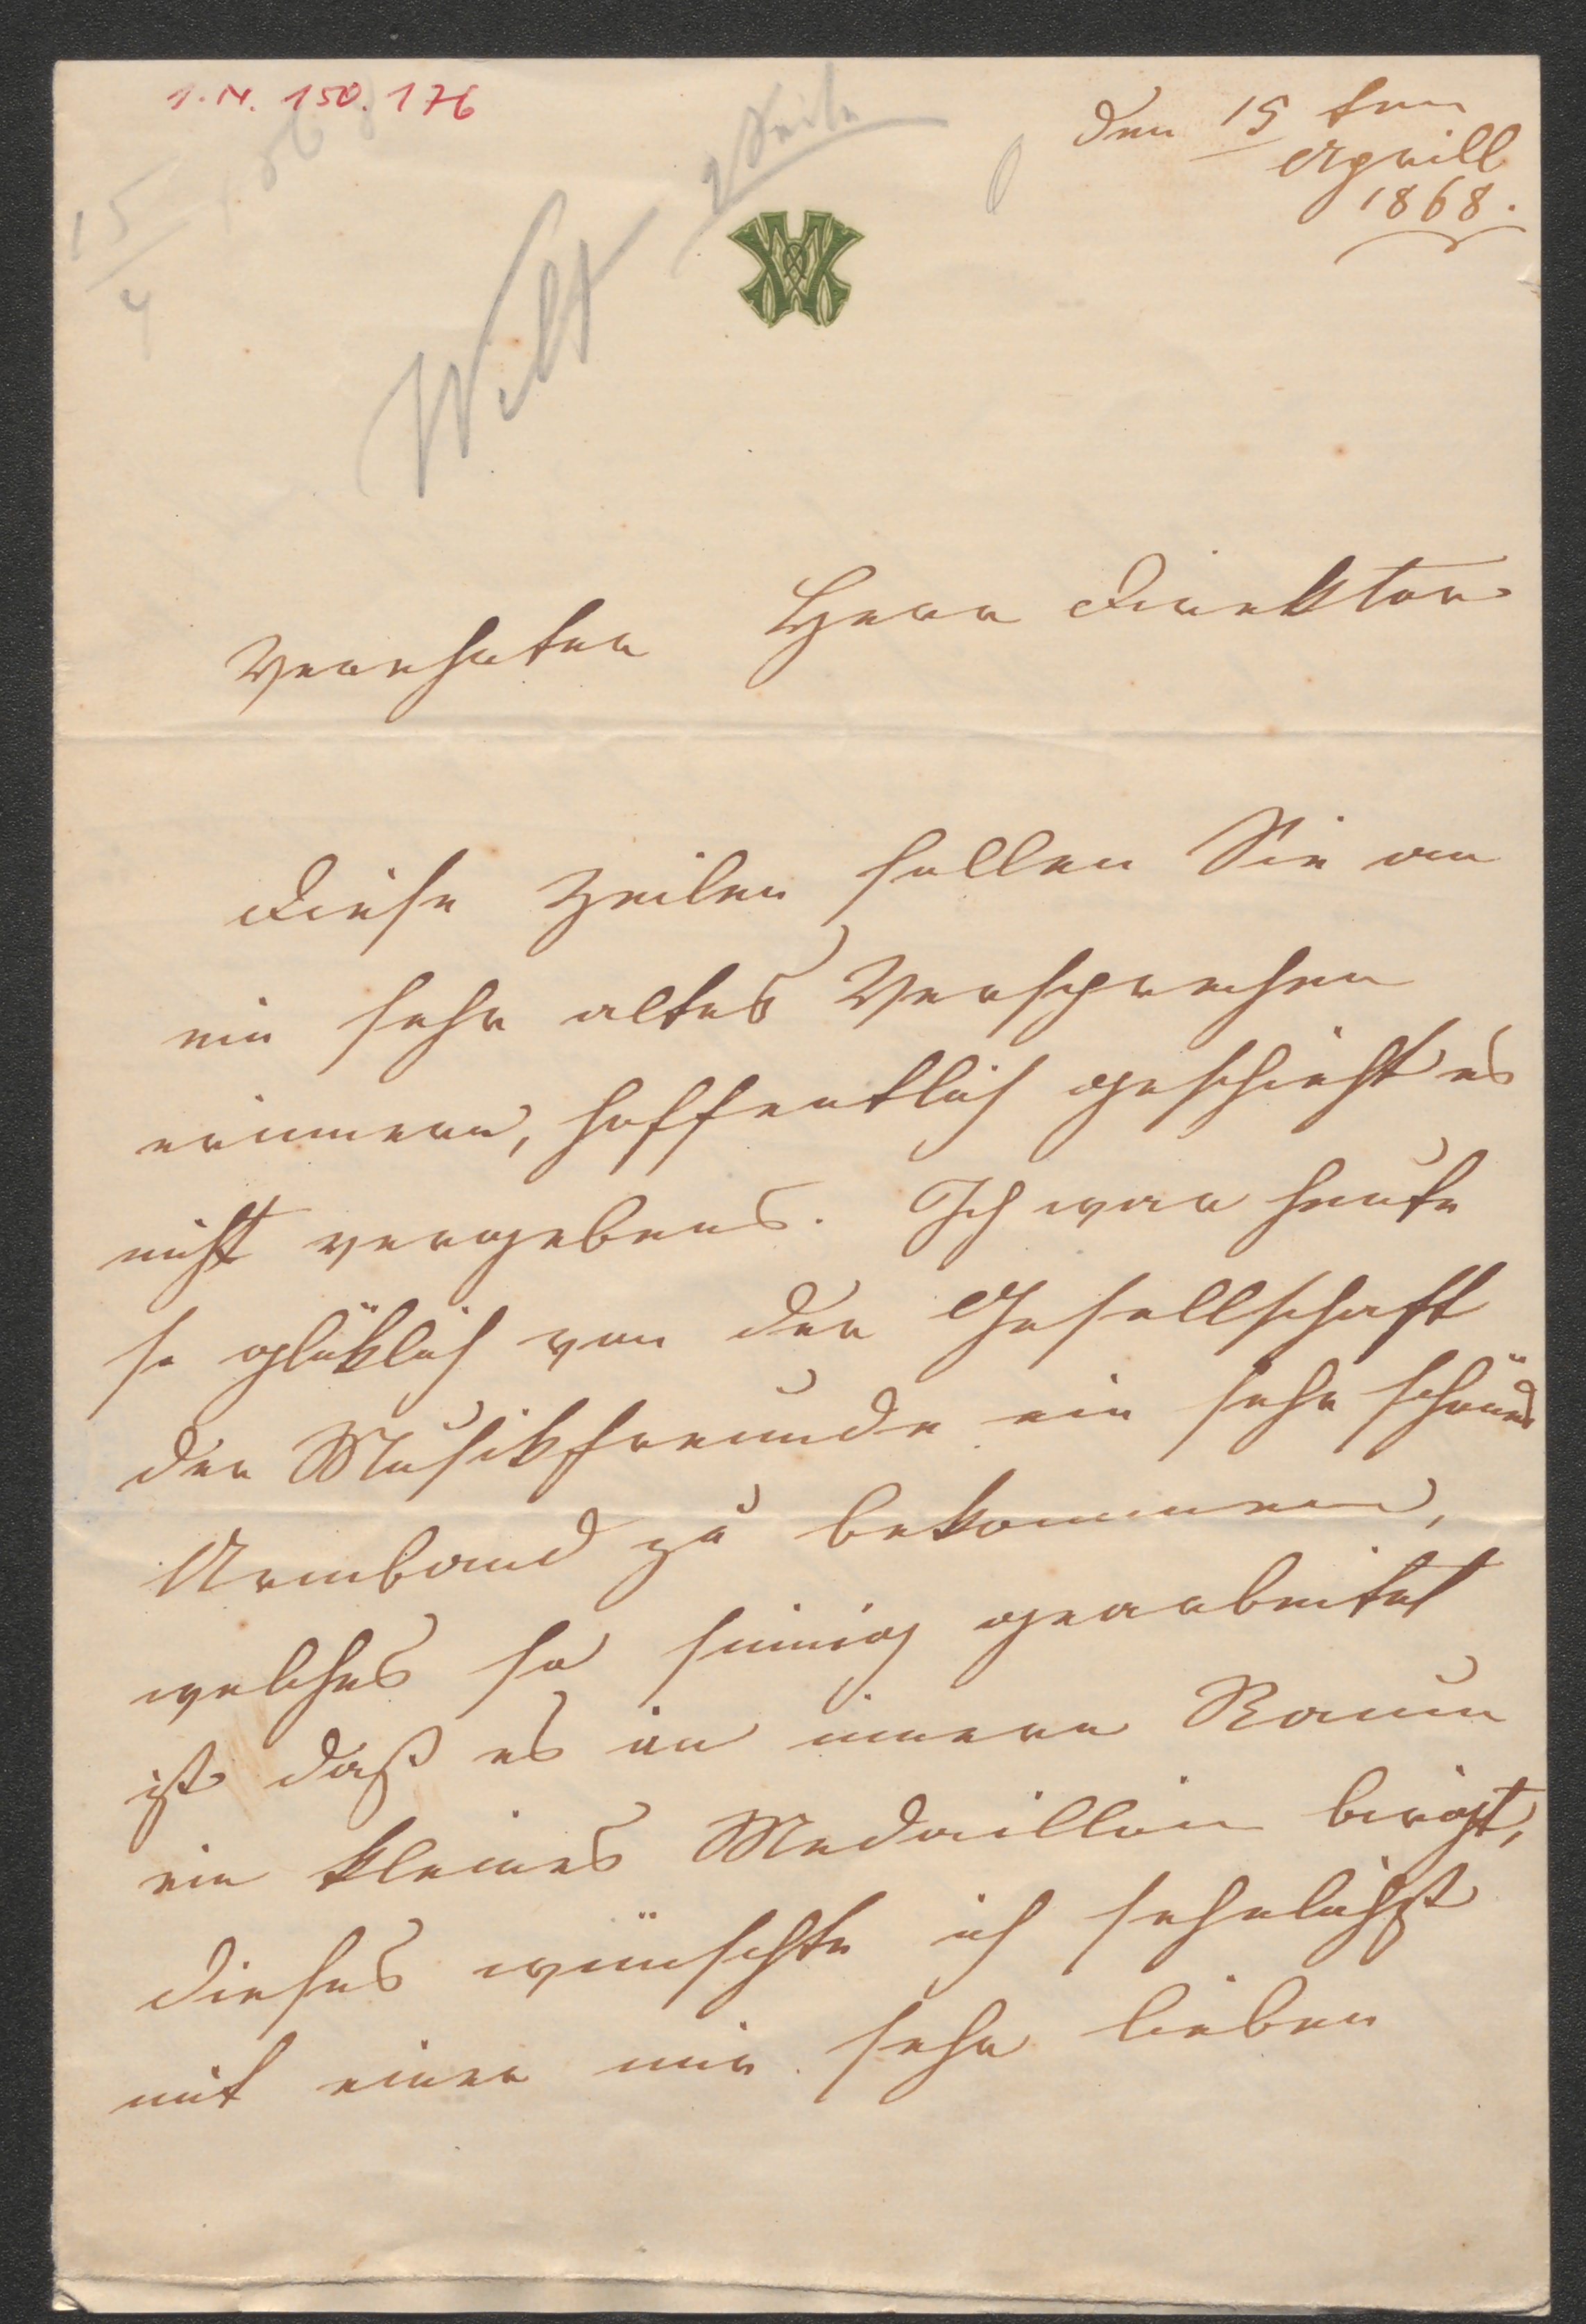 I.N. 150.176
15/4 1868
Wilt
2 Seite
Den 15 ten
Aprill
1868.
Verehrter Herr Direktor
Diese Zeilen sollen Sie an
ein sehr altes Versprechen
erinnern, hoffentlich geschieht es
nicht vergebens. Ich war heute
so glüklich von der Gesellschaft
der Musikfreunde ein sehr schönes
Armband zu bekommen,
welches so sinnig gearbeitet
ist daß es in innern Raum
ein kleines Medaillon birgt,
dieses wünschte ich sehnlichst
mit einer mir sehr lieben